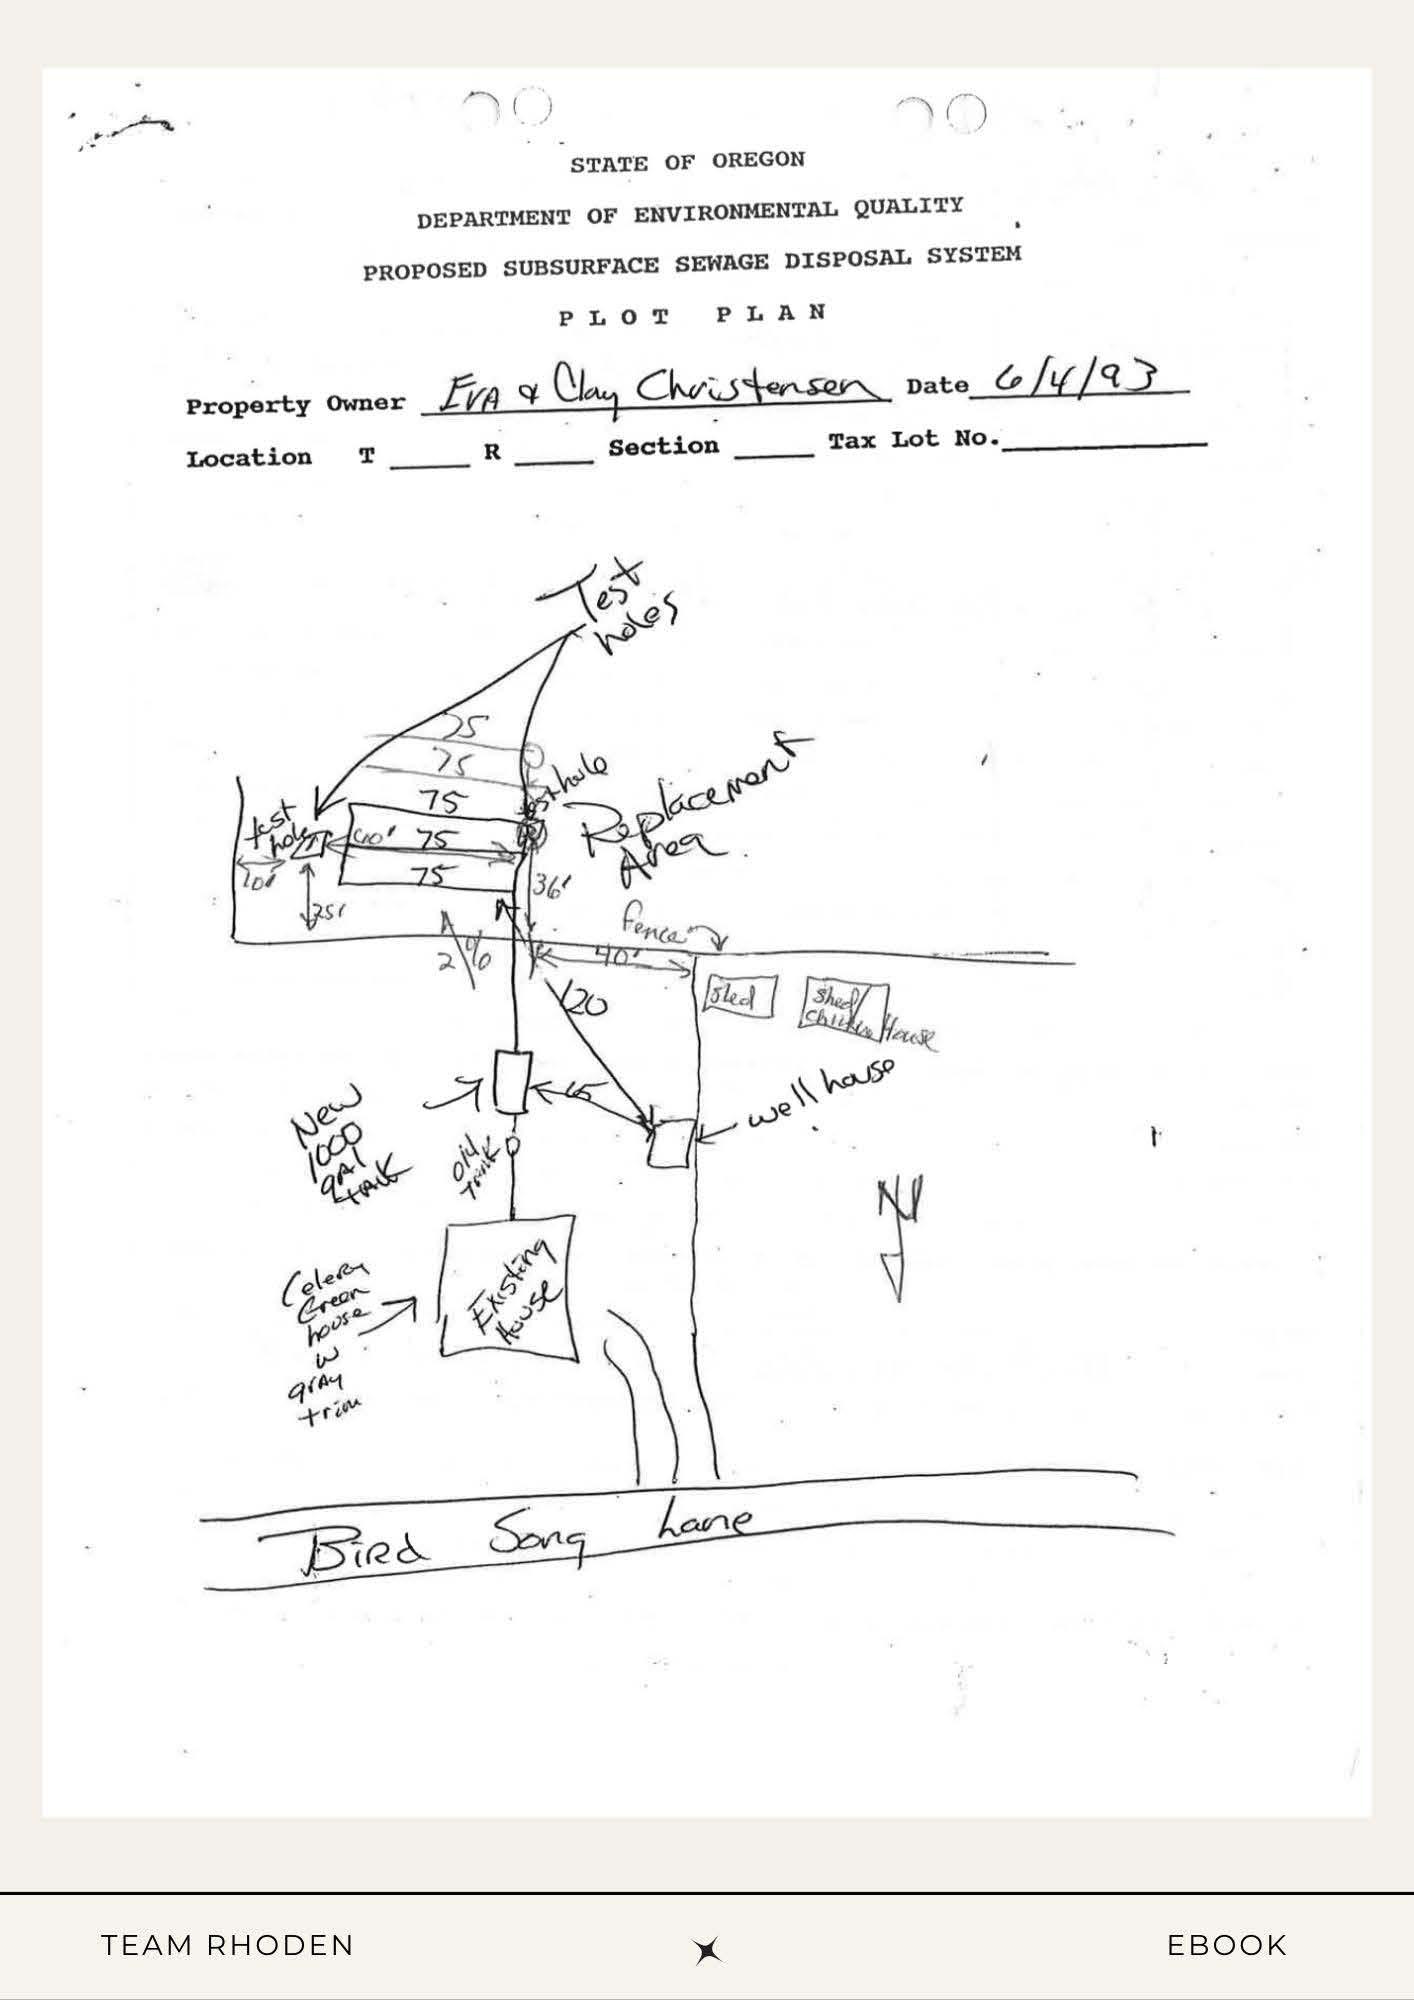 STATE OF OREGON
DEPARTMENT OF ENVIRONMENTAL QUALITY
PROPOSED SUBSURFACE SEWAGE DISPOSAL SYSTEM
PLOT PLAN
Property Owner Eva & Clay Christensen Date 6/4/93
Location T R Section Tax Lot No.
Test
holes
75
75
75
75
75
test
hole
test hole
Replacement
Area
10'
25'
36'
fence
2%
40'
120
shed
shed/
chicken House
65
well house
New
1000
gal
tank
old
tank
N
Celery
Green
house
w
gray
trim
Existing
House
Bird Song Lane
TEAM RHODEN
EBOOK